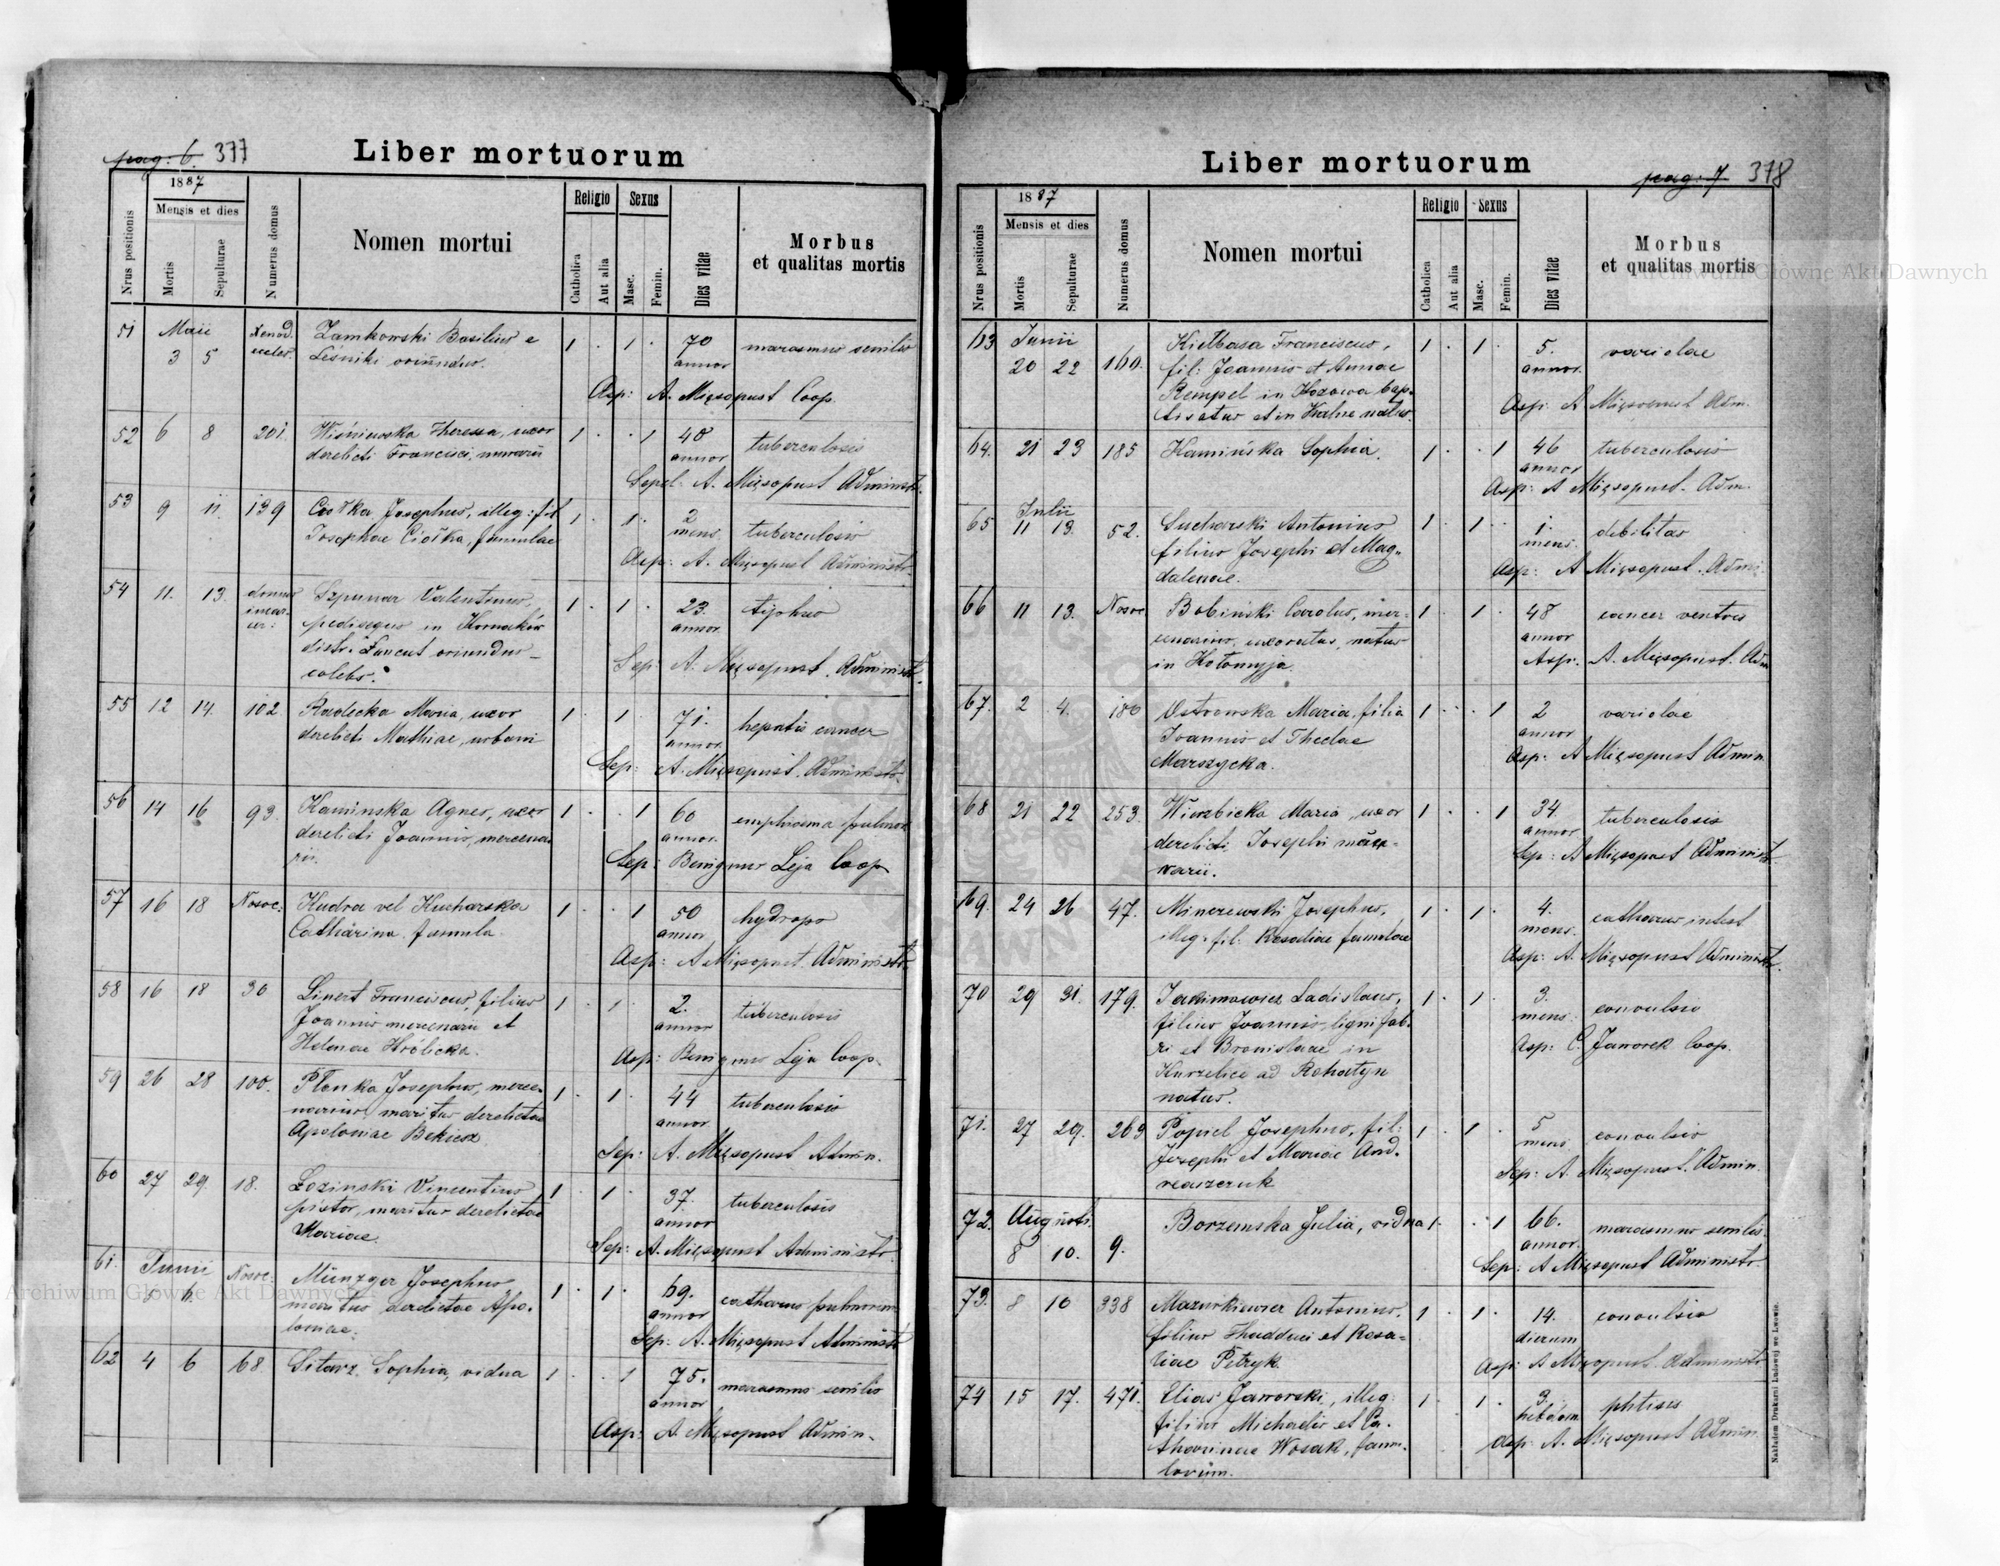 pag: 6. 377
Liber mortuorum
1887
Mensis et dies
Nrus positionis
Mortis
Sepulturae
Numerus domus
Nomen mortui
Religio
Catholica
Aut alia
Sexus
Masc.
Femin.
Dies vitae
Morbus
et qualitas mortis
51 Maii
3 5 Zamkowski Basilius e 1 1 70 marasmus senilis
Lesniki oriundus. annor
Asp: A. Mięsopust Coop.
52 6 8 201. Wiśniewska Theressa, uxor 1 1 48 tuberculosis
derelicti Francisci, murarii annor
Sepel: A. Mięsopust Administr.
53 9 11. 139 Josephus, illeg: fil 1 1 2 tuberculosis
Josephae famulae mens
Asp: A. Mięsopust Administr.
54 11. 13. domus Szpunar Valentinus, 1 1 23. typhus
incar- pedisequus in Kornaków annor
cer: distr: Łancut oriundus
celebs.
Sep: A. Mięsopust. Administr.
55 12 14. 102. Radecka Maria, uxor 1 1 71. hepatis cancer
derelicti Mathiae, urbani annor.
Sep: A. Mięsopust. Administr.
56 14 16 93. Kaminska Agnes, uxor 1 1 60 pulmon
derelicti Joannis, mercena annor.
rii.
Sep: Benignus Leja Coop
57 16 18 Nosoc: Kudra vel Kucharska 1 1 50 hydrops
Catharina famula. annor.
Asp: A Mięsopust Administr.
58 16 18 30 Linert Franciscus, filius 1 1 2. tuberculosis
Joannis mercenarii et annor
Helenae Hrobicka.
Asp: Benignus Leja Coop.
59 26 28 100. Płonka Josephus, merce- 1 1 44 tuberculosis
narius maritus derelictae annor.
Apoloniae
Sep: A. Mięsopust Admin.
60 27 29. 18. Lozinski Vincentius 1 1 37. tuberculosis
pistor, maritus derelictae annor
Mariae.
Sep: A. Mięsopust Administr.
61. Junii Nosoc: Münzger Josephus 1 1 69. catharus pulmonum
6. maritus derelictae Apo- annor
loniae.
Sep: A. Mięsopust Administr
62 4 6 68. Sitarz Sophia, vidua 1 1 75. marasmus senilis
annor
Asp: A. Mięsopust Admin.
pag: 7 378
Liber mortuorum
1887
Mensis et dies
Nrus positionis
Mortis
Sepulturae
Numerus domus
Nomen mortui
Religio
Catholica
Aut alia
Sexus
Masc.
Femin.
Dies vitae
Morbus
et qualitas mortis
63 Junii Kiełbasa Franciscus, 1 1 5. variolae
20 22 160. fil: Joannis et Annae annor.
Rempel in Kozowa bap-
tisatus et in Kalne natus.
Asp: A Mięsopust Adm.
64. 21 23 185 Kamińska Sophia. 1 1 46 tuberculosis
annor
Asp: A Mięsopust. Adm.
65 Julii
11 13. 52. Sucharski Antonius 1 1 1. debilitas
filius Josephi et Mag- mens.
dalenae.
Asp: A Mięsopust. Admi.
66 11 13. Nosoc Bobiński Carolus, mer- 1 1 48 cancer ventris
cenarius, uxoratus, natus annor
in Kołomyja.
Asp. A. Mięsopust. Adm
67. 2 4. 180 Ostrowska Maria, filia 1 1 2 variolae
Joannis et Theclae annor
Marszycka.
Asp: A Mięsopust Admin
68 21 22 253. Wierzbicka Maria, uxor 1 1 34. tuberculosis
derelicti Josephi annor.
Sep: A Mięsopust Administr
69. 24 26 47. Josephus, 1 1 4. catharus intest
illeg: fil: Rosaliae famulae mens.
Asp: A. Mięsopust Administr.
70 29 31. 179. Jakimowicz Ladislaus, 1 1 3. convulsio
filius Joannis, ligni fab- mens:
ri et Bronislaae in
ad Rohatyn
natus.
Asp: C. Jaworek Coop.
71. 27 29. 269 Popiel Josephus, fil: 1 1 5 convulsio
Josephi et Mariae And- mens.
Sep: A. Mięsopust. Admin.
72. Augusti Borzemska Julia, vidua 1 1 66. marasmus senilis.
8 10. 9. annor.
Sep: A Mięsopust Administr.
73. 8 10 338 Mazurkiewicz Antonius, 1 1 14. convulsio
filius Thaddaei et Rosa- dierum
liae Petryk.
Asp: A Mięsopust Administr
74 15 17. 471. Elias Jaworski, illeg: 1 1 3. phtisis
filius Michaelis et Ca- hebdom.
tharinae Wosak, famu-
lorum.
Asp: A. Mięsopust Admin.
Nakładem Drukarni Ludowej we Lwowie.
Archiwum Główne Akt Dawnych
Archiwum Główne Akt Dawnych